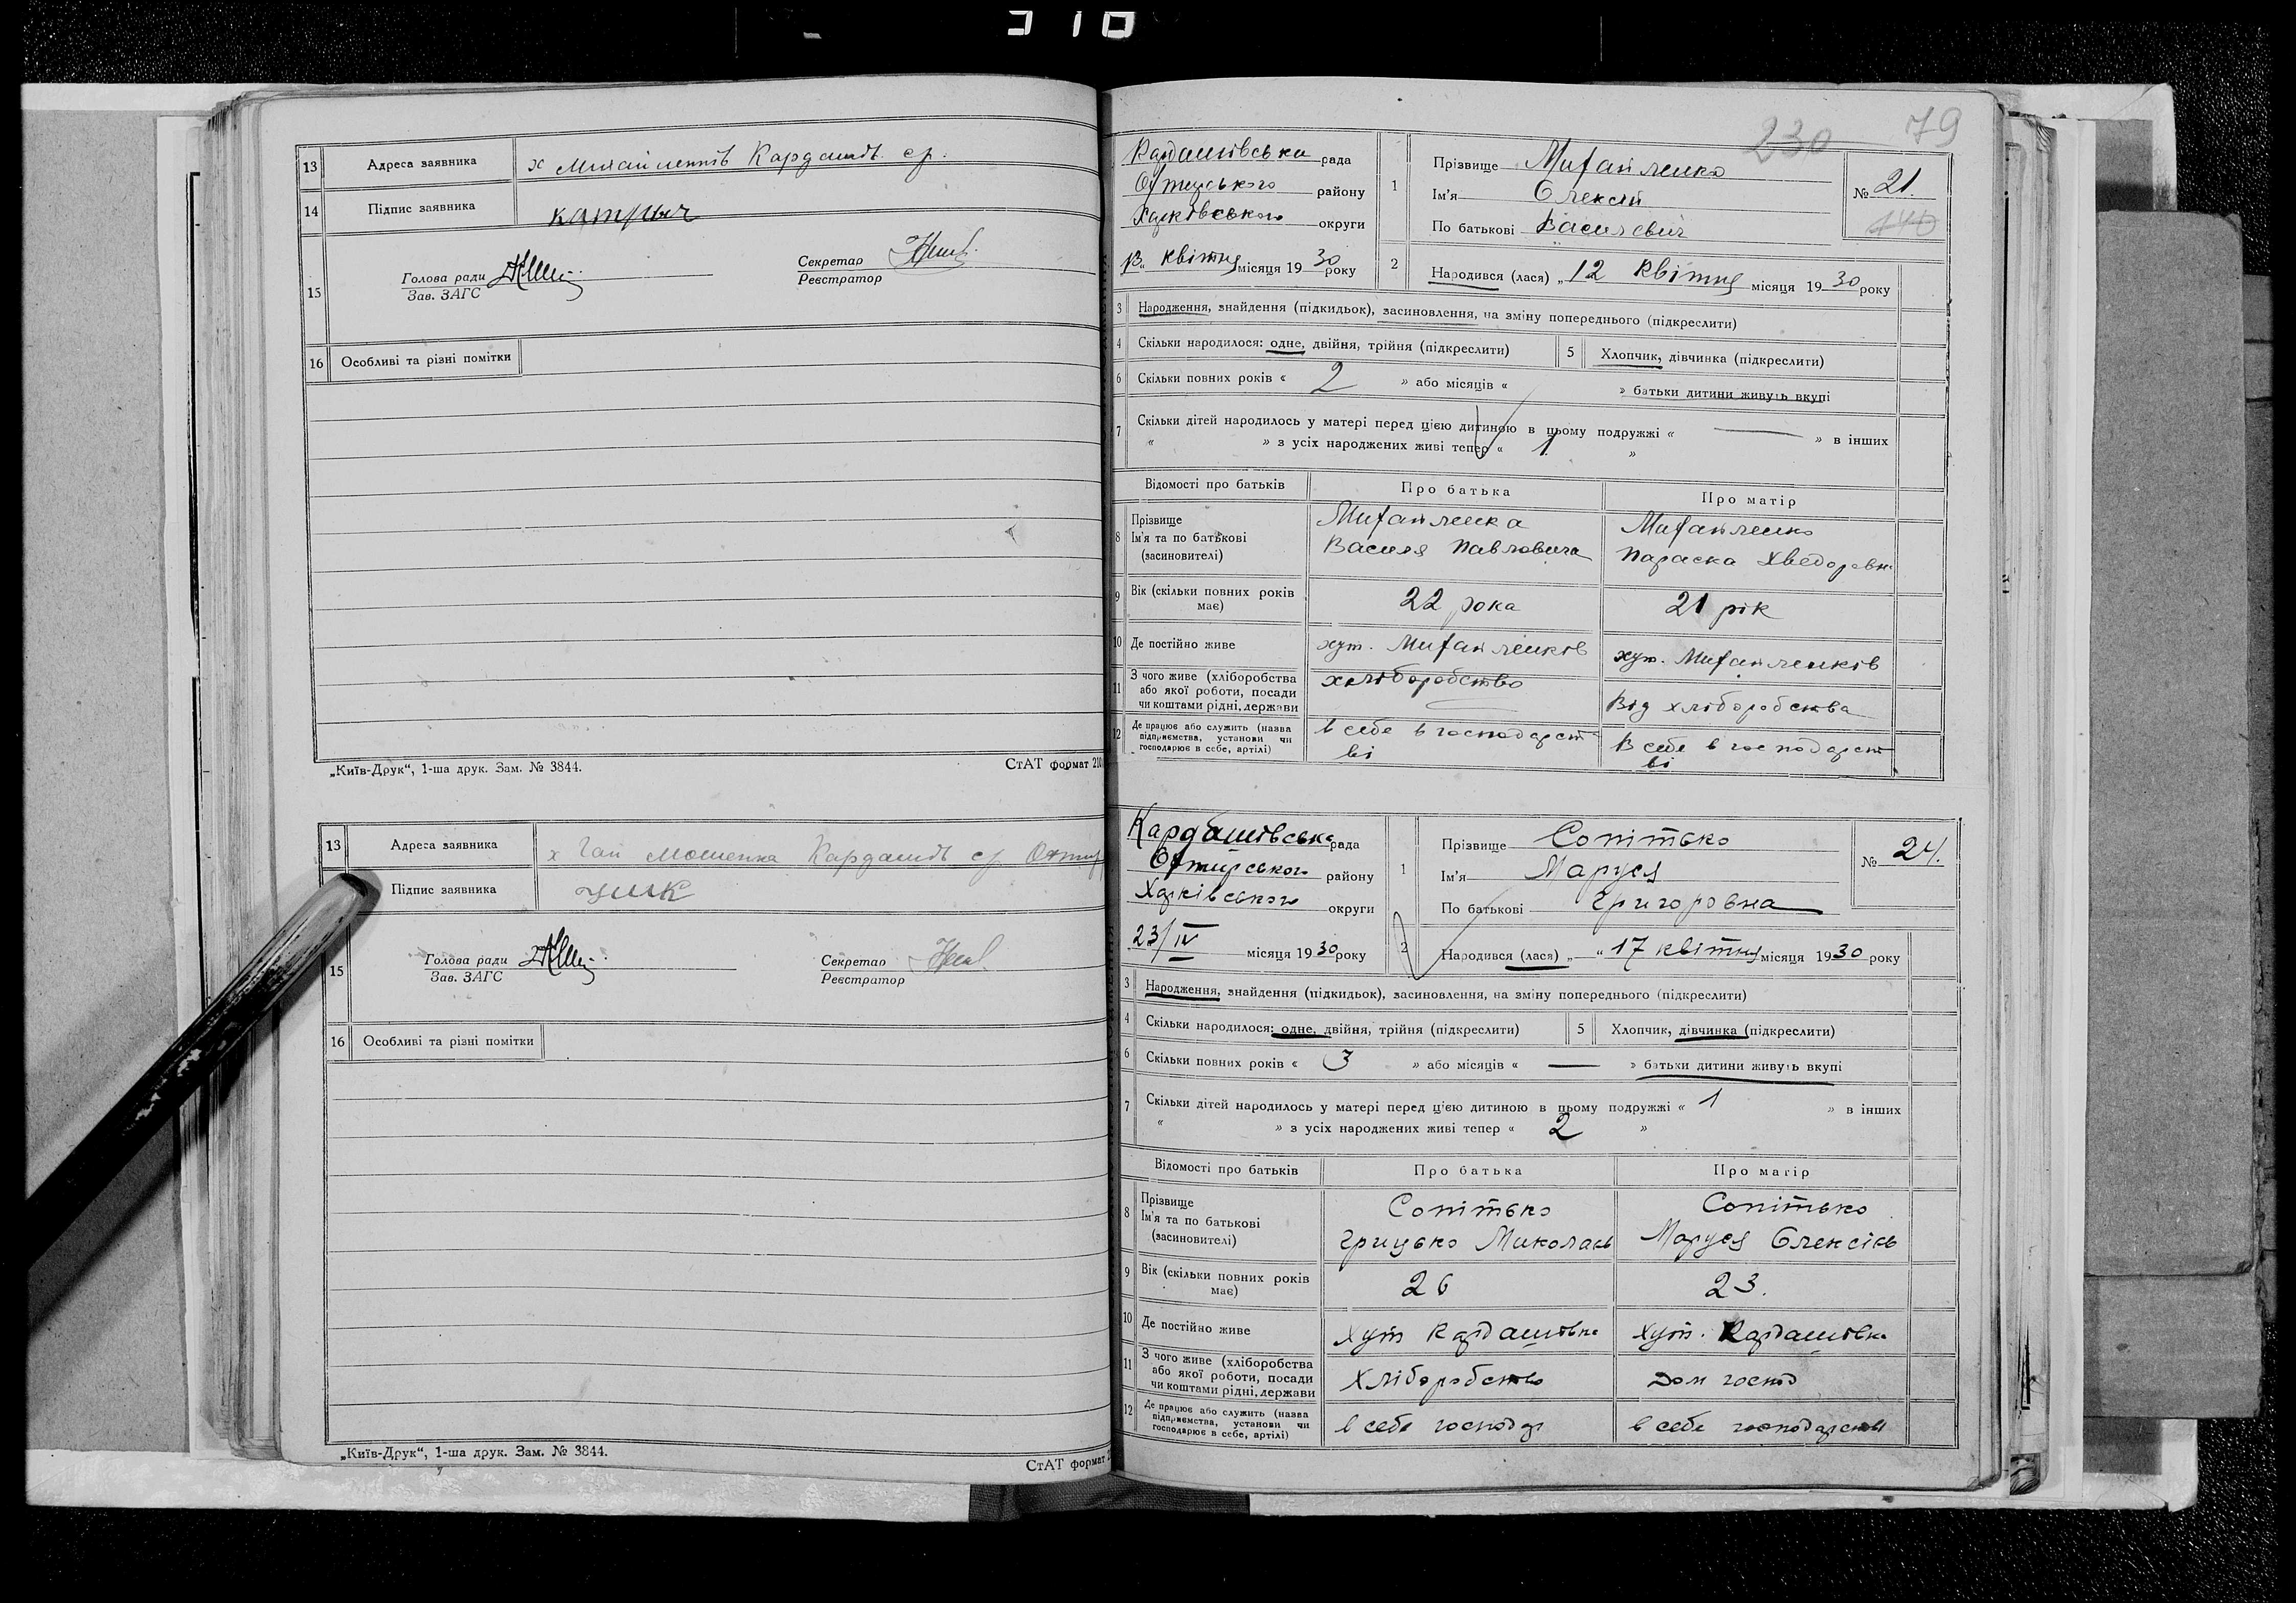 310
13 Адреса заявника х Михайленків Кардашів. ср.
14 Підпис заявника
15 Голова ради
Зав. ЗАГС
Секретар
Реєстратор
16 Особливі та різні помітки
„Київ-Друк“, 1-ша друк. Зам. № 3844.
СтАТ формат 210
13 Адреса заявника х Кардашів ср
Підпис заявника
15 Голова ради
Зав. ЗАГС
Секретар
Реєстратор
16 Особливі та різні помітки
„Київ-Друк“, 1-ша друк. Зам. № 3844.
СтАТ формат
230 79
Кардашівська рада
Охтирського району
Харківського округи
квітня місяця 1930 року
1 Прізвище Михайленко
Ім'я Олексій
По батькові Василевич
№ 21.
140
2 Народився (лася) „12 Квітня місяця 1930 року
3 Народження, знайдення (підкидьок), засиновлення, на зміну попереднього (підкреслити)
4 Скільки народилося: одне, двійня, трійня (підкреслити)
5 Хлопчик, дівчинка (підкреслити)
6 Скільки повних років « 2 » або місяців « » батьки дитини живуть вкупі
7 Скільки дітей народилось у матері перед цією дитиною в цьому подружжі « — » в інших
« » з усіх народжених живі тепер « 1 »
Відомості про батьків Про батька Про матір
8 Прізвище
Ім'я та по батькові
(засиновителі)
Михайленка
Василя Павловича
Михайленко
Параска Хведоровн
9 Вік (скільки повних років має) 22 рока 21 рік
10 Де постійно живе хут. Михайленків хут. Михайленків
11 З чого живе (хліборобства
або якої роботи, посади
чи коштами рідні, держави
хліборобство
Від хліборобства
12 Де працює або служить (назва
підприємства, установи чи
господарює в себе, артілі)
в себе в господарст
ві
В себе в господарст
ві
Кардашівська рада
Охтирського району
Харківського округи
23/IV місяця 1930 року
1 Прізвище Сопітько
Ім'я Маруся
По батькові Григоровна
№ 24.
2 Народився (лася) „ “17 квітня місяця 1930 року
3 Народження, знайдення (підкидьок), засиновлення, на зміну попереднього (підкреслити)
4 Скільки народилося: одне, двійня, трійня (підкреслити)
5 Хлопчик, дівчинка (підкреслити)
6 Скільки повних років « 3 » або місяців « — » батьки дитини живуть вкупі
7 Скільки дітей народилось у матері перед цією дитиною в цьому подружжі « 1 » в інших
« » з усіх народжених живі тепер « 2 »
Відомості про батьків Про батька Про матір
8 Прізвище
Ім'я та по батькові
(засиновителі)
Сопітько
Грицько Миколаєв
Сопітько
Маруся Олексієв
9 Вік (скільки повних років має) 26 23.
10 Де постійно живе Хут Кардашівка Хут. Кардашівка
11 З чого живе (хліборобства
або якої роботи, посади
чи коштами рідні, держави
Хліборобство
Дом господ
12 Де працює або служить (назва
підприємства, установи чи
господарює в себе, артілі)
в себе господар
в себе